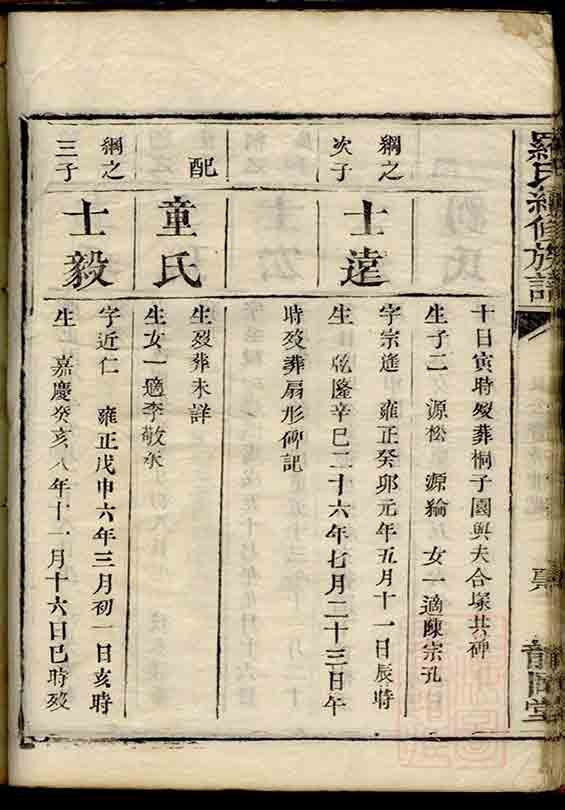 羅氏續修族譜
十日寅時歿葬桐子園與夫合塚共碑
生子二 源松 源綸 女一適陳宗孔
綱之
次子
士遠
字宗逵 雍正癸卯元年五月十一日辰時
生 乾隆辛巳二十六年七月二十三日午
時歿葬扇形碑記
配
童氏
生歿葬未詳
生女一適李敬承
綱之
三子
士毅
字近仁 雍正戊申六年三月初一日亥時
生 嘉慶癸亥八年十一月十六日巳時歿